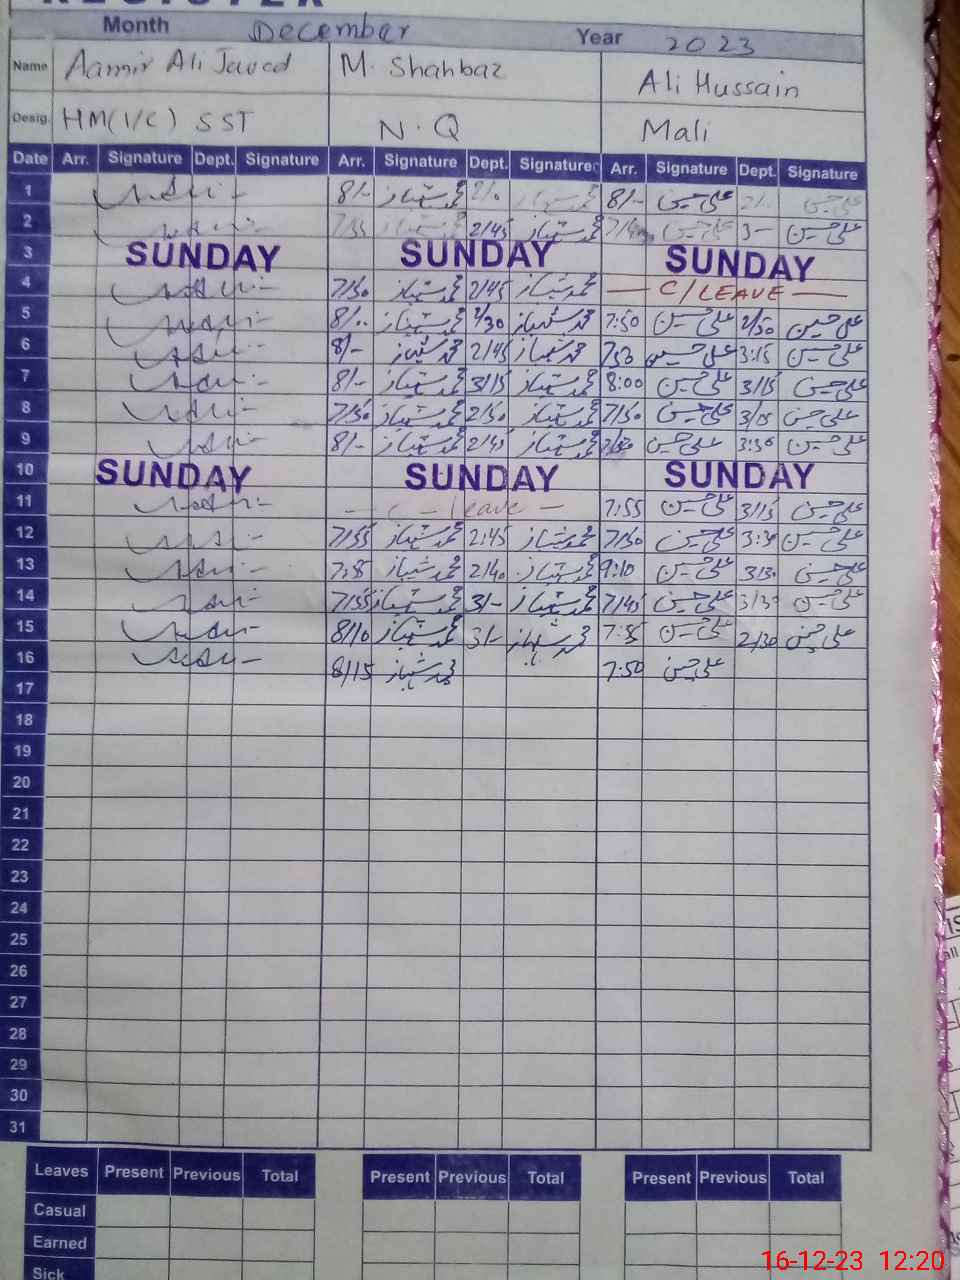 REGISTER
Month December Year 2023
Name Aamir Ali Javed M. Shahbaz Ali Hussain
Desig. HM(I/C) SST N.Q Mali
Date Arr. Signature Dept. Signature Arr. Signature Dept. Signature Arr. Signature Dept. Signature
1 8/- محمد شہباز 2/- محمد شہباز 8/- علی حسین 2/- علی حسین
2 7/55 محمد شہباز 2/45 محمد شہباز علی حسین 3- علی حسین
3 SUNDAY SUNDAY SUNDAY
4 7/50 محمد شہباز 2/45 محمد شہباز — C/LEAVE —
5 8/.. محمد شہباز 2/30 محمد شہباز 7:50 علی حسین 2/30 علی حسین
6 8/- محمد شہباز 2/45 محمد شہباز 750 علی حسین 3:15 علی حسین
7 8/- محمد شہباز 3/15 محمد شہباز 8:00 علی حسین 3/15 علی حسین
8 7/50 محمد شہباز 2/50 محمد شہباز 7/50 علی حسین 3/15 علی حسین
9 8/- محمد شہباز 2/45 محمد شہباز علی حسین 3:30 علی حسین
10 SUNDAY SUNDAY SUNDAY
11 — C — leave — 7:55 علی حسین 3/15 علی حسین
12 7/55 محمد شہباز 2:45 محمد شہباز 7/50 علی حسین 3:30 علی حسین
13 محمد شہباز 2/40 محمد شہباز علی حسین 3/30 علی حسین
14 7/55 محمد شہباز 3/- محمد شہباز 7/45 علی حسین 3/30 علی حسین
15 8/10 محمد شہباز 3/- محمد شہباز 7:55 علی حسین 2/30 علی حسین
16 8/15 محمد شہباز 7:50 علی حسین
17
18
19
20
21
22
23
24
25
26
27
28
29
30
31
Leaves Present Previous Total Present Previous Total Present Previous Total
Casual
Earned
Sick
16-12-23 12:20